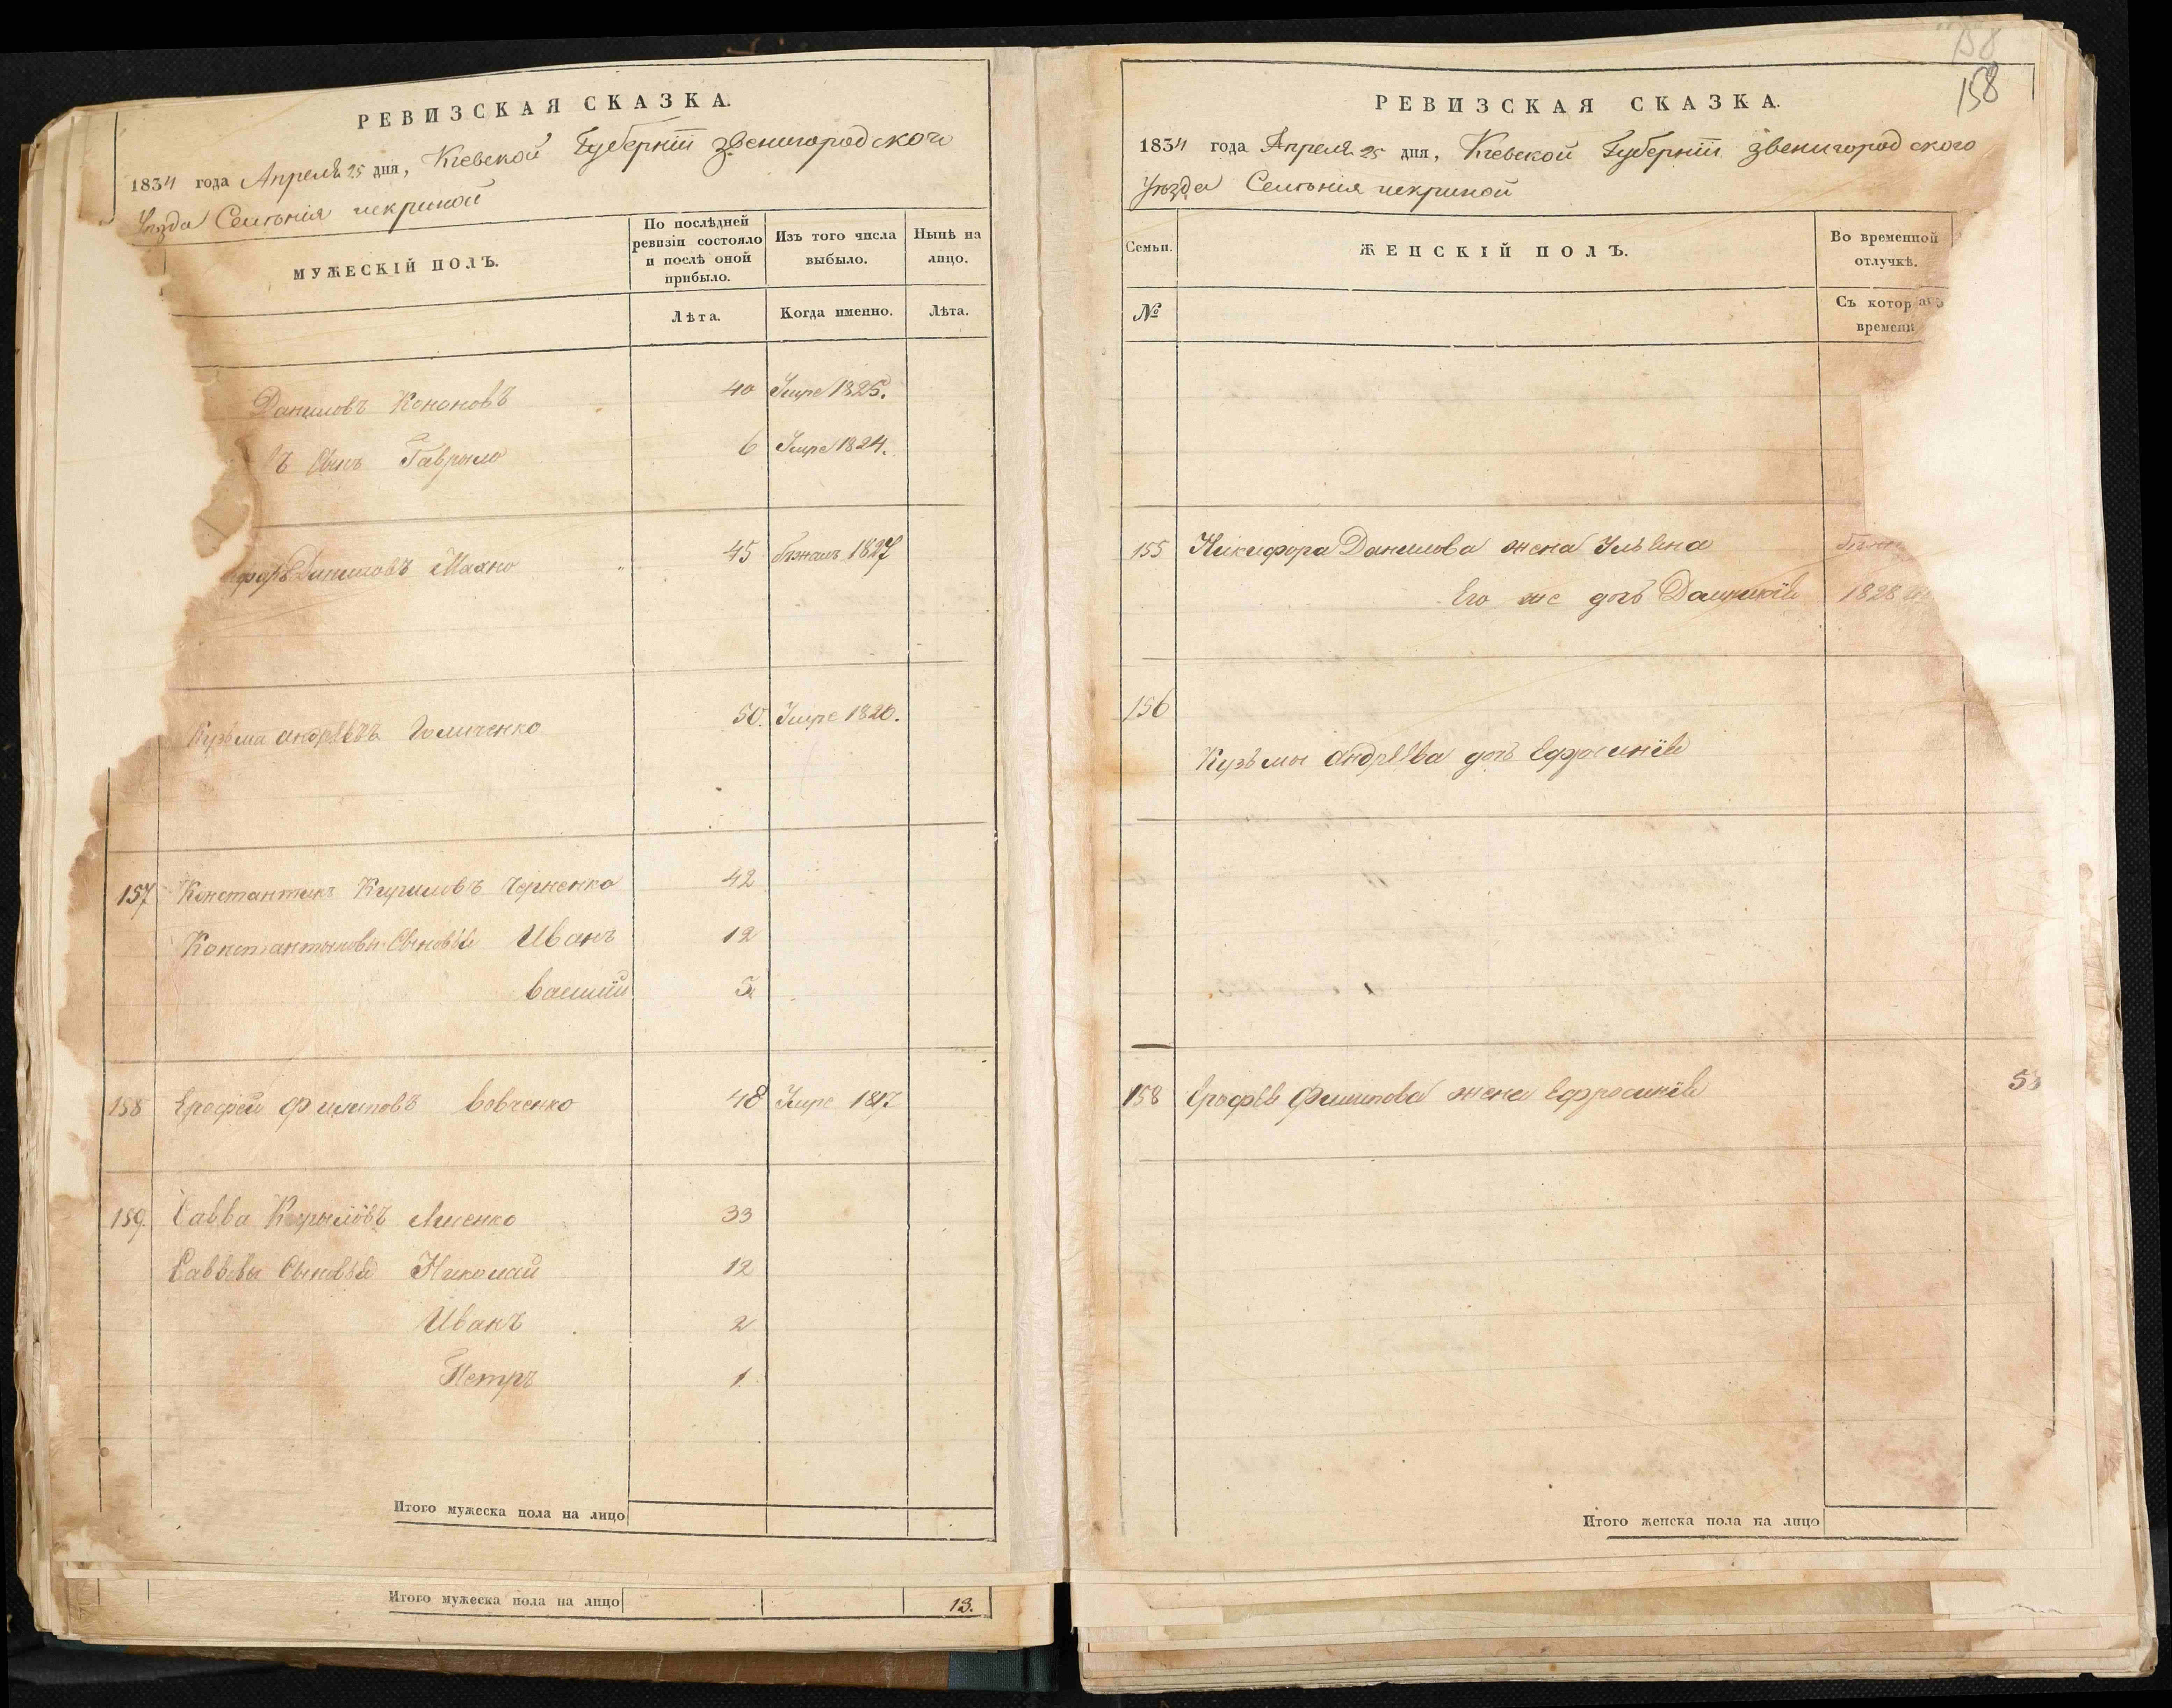 РЕВИЗСКАЯ СКАЗКА.
1834 года Апреля 25 дня, Кіевской Губерніи Звенигородского
Уѣзда Селѣнія искриной
МУЖЕСКІЙ ПОЛЪ.
По послѣдней ревизіи состояло и послѣ оной прибыло.
Изъ того числа выбыло.
Нынѣ на лицо.
Лѣта.
Когда именно.
Лѣта.
Даниловъ Кононовъ 40 Умре 1825.
Сынъ Гаврыло 6 Умре 1824.
Даниловъ Махно 45 бѣжалъ 1827
Кузьма андрѣевъ 50. Умре 1826.
157 Константинъ Кириловъ Черненко 42
Константыновы Сыновья Иванъ 12
василій 5
158 Ерофей Филиповъ Вовченко 48 Умре 1817
159. Савва Кирыловъ Лисенко 33
Саввовы Сыновья Николай 12
Иванъ 2
Петръ 1.
Итого мужеска пола на лицо
Итого мужеска пола на лицо 13.
158
158
РЕВИЗСКАЯ СКАЗКА.
1834 года Апреля 25 дня, Кіевской Губерніи звенигородского
Уѣзда Селѣнія искриной
Семьи.
ЖЕНСКІЙ ПОЛЪ.
Во временной отлучкѣ.
№
Съ котор времени
155 Никифора Данилова жена Ульяна
Его же дочь 1828
156
Кузьмы андрѣева дочь Ефросинія
158 Ерофея Филипова жена Ефросинія 53
Итого женска пола на лицо